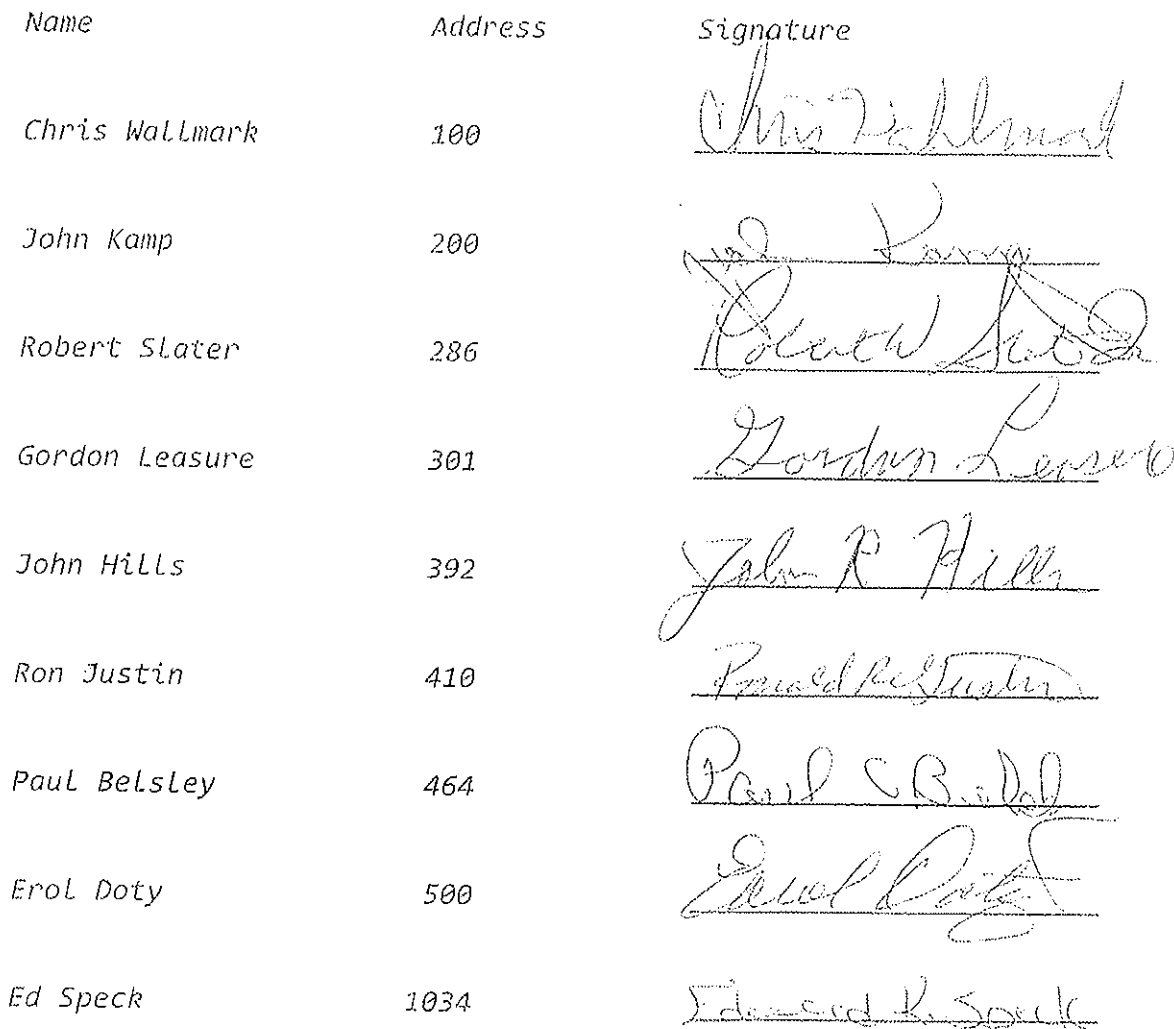 Name Address Signature
Chris Wallmark 100 Chris Wahlmark
John Kamp 200 John Kamp
Robert Slater 286 Robert W Slater
Gordon Leasure 301 Gordon
John Hills 392 John R Hills
Ron Justin 410 Ronald R Justin
Paul Belsley 464 Paul
Erol Doty 500 Errol Doty
Ed Speck 1034 Edward K. Speck